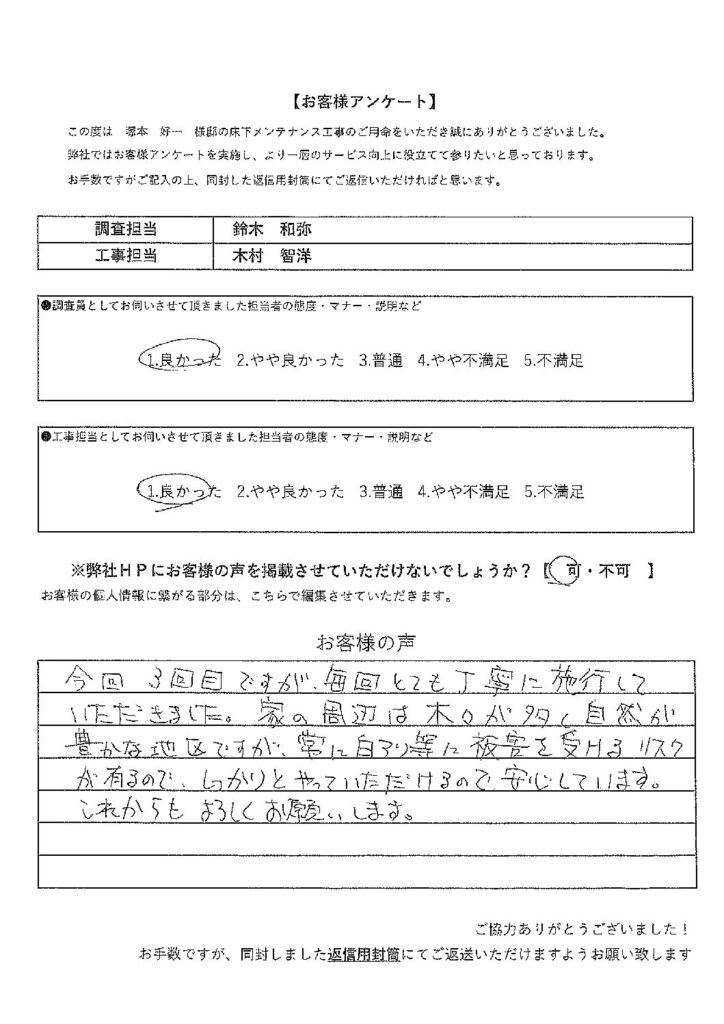 【お客様アンケート】
この度は　塚本　好一　様邸の床下メンテナンス工事のご用命をいただき誠にありがとうございました。
弊社ではお客様アンケートを実施し、より一層のサービス向上に役立てて参りたいと思っております。
お手数ですがご記入の上、同封した返信用封筒にてご返信いただければと思います。
調査担当　鈴木　和弥
工事担当　木村　智洋
●調査員としてお伺いさせて頂きました担当者の態度・マナー・説明など
1.良かった　2.やや良かった　3.普通　4.やや不満足　5.不満足
●工事担当としてお伺いさせて頂きました担当者の態度・マナー・説明など
1.良かった　2.やや良かった　3.普通　4.やや不満足　5.不満足
※弊社ＨＰにお客様の声を掲載させていただけないでしょうか？【　可・不可　】
お客様の個人情報に繋がる部分は、こちらで編集させていただきます。
お客様の声
今回 3回目ですが、毎回とても丁寧に施行して
いただきました。家の周辺は木々が多く自然が
豊かな地区ですが、常に白アリ等に被害を受けるリスク
が有るので、しっかりとやっていただけるので安心しています。
これからもよろしくお願いします。
ご協力ありがとうございました！
お手数ですが、同封しました返信用封筒にてご返送いただけますようお願い致します